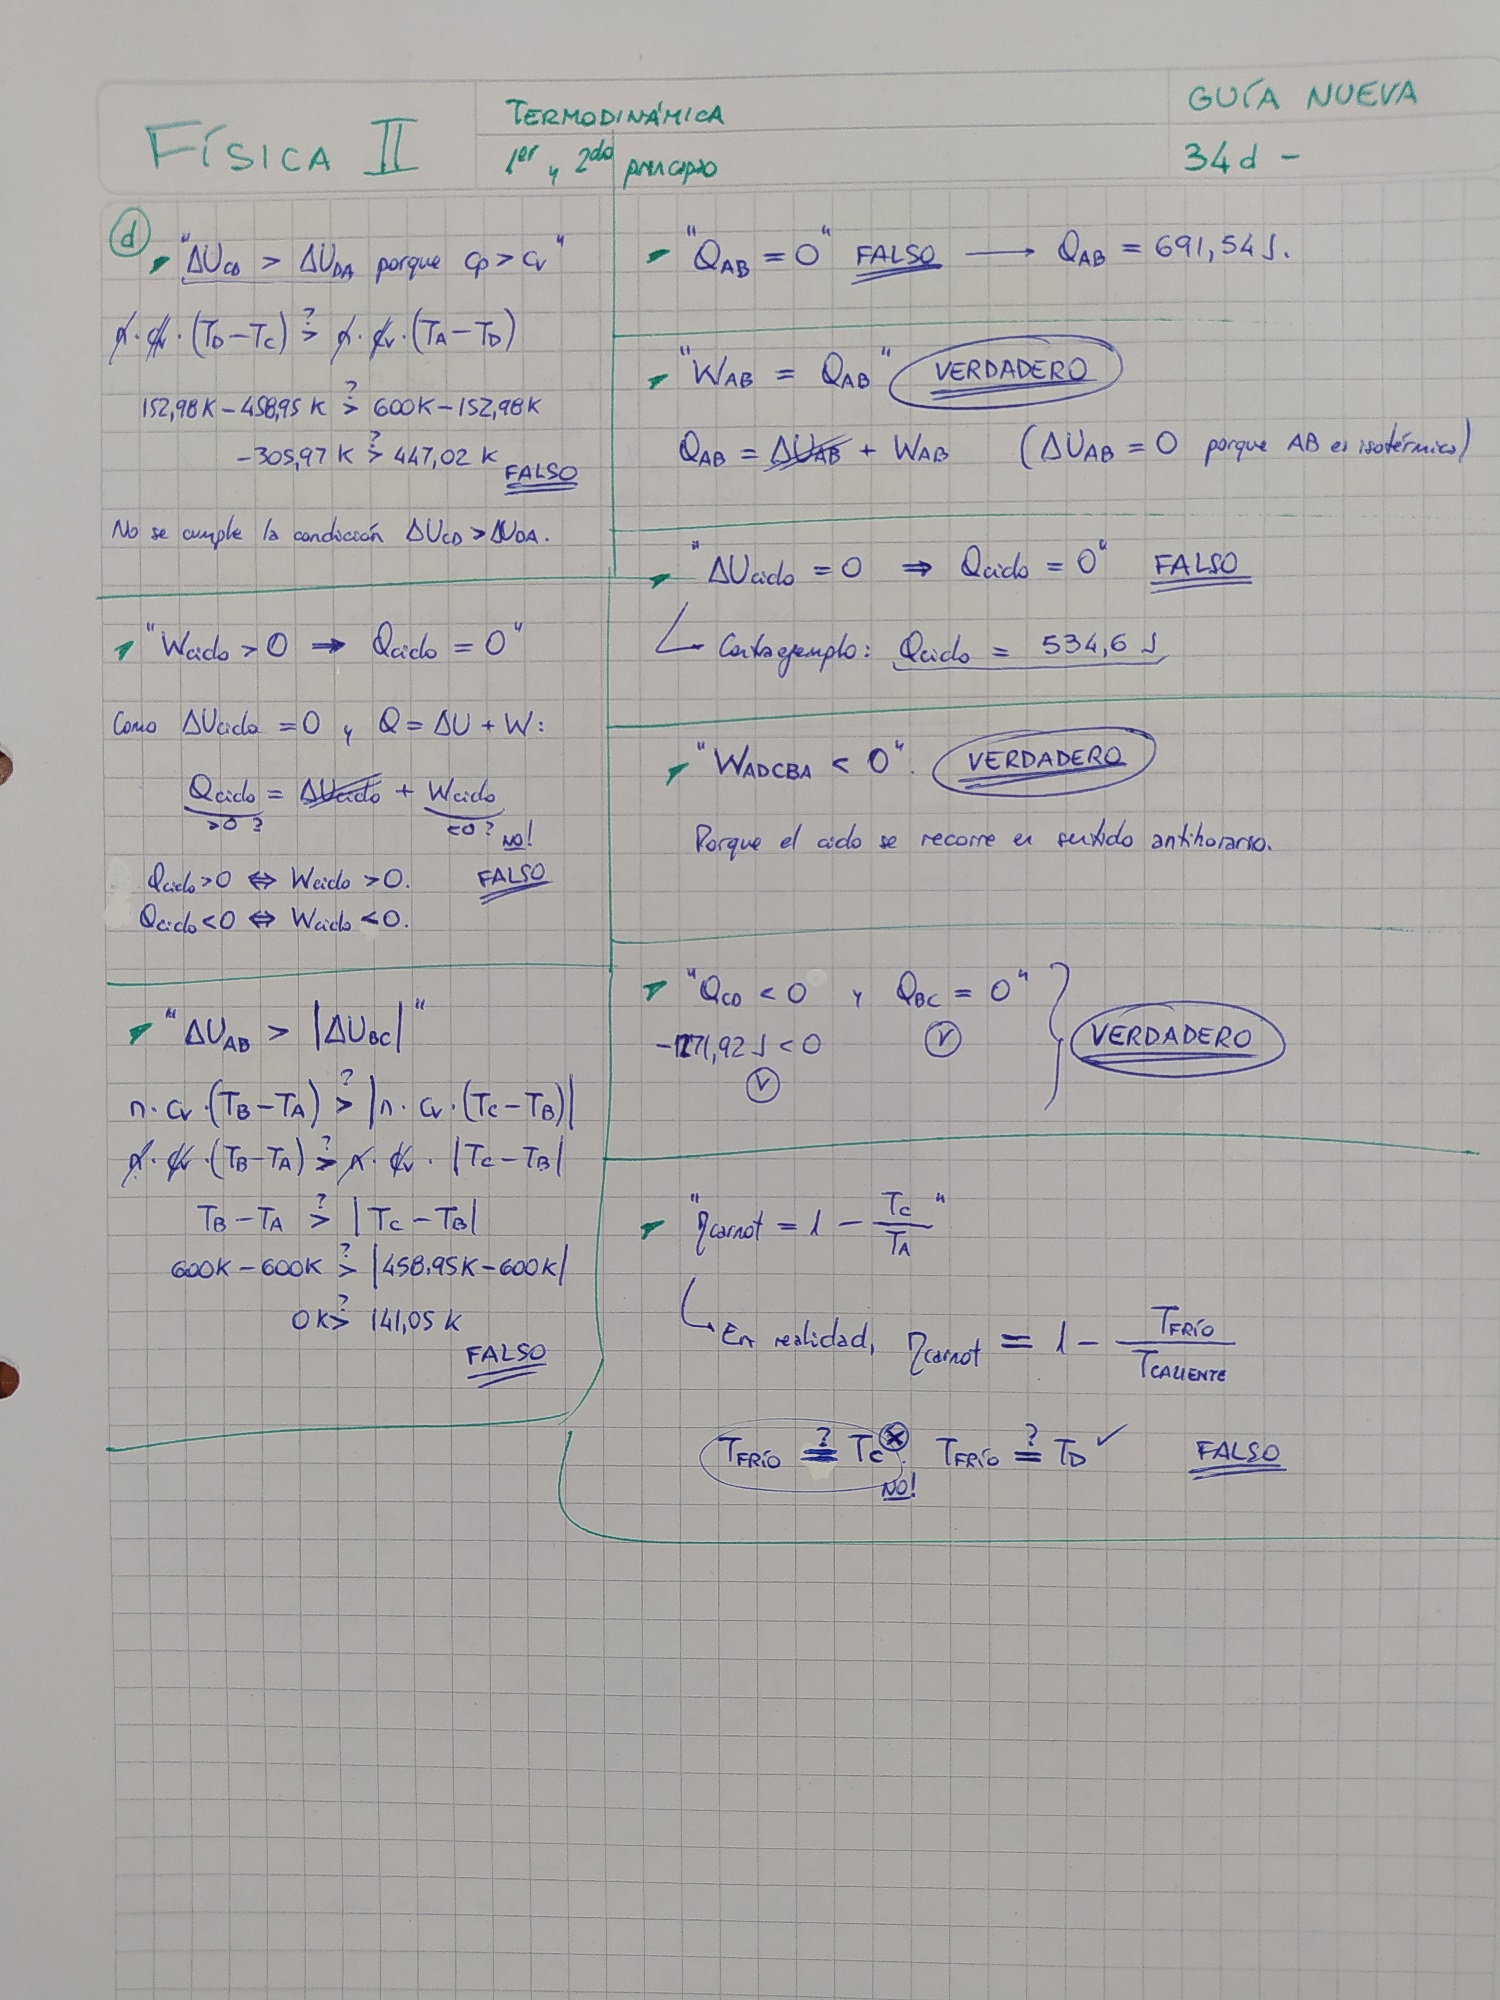 FÍSICA II
TERMODINÁMICA
1er y 2do principio
GUÍA NUEVA
34d -
d
"ΔUCD > ΔUDA porque cp > cv"
n·cv·(TD-TC) ?> n·cv·(TA-TD)
152,98K-458,95K ?> 600K-152,98K
-305,97K ?> 447,02K
FALSO
No se cumple la condición ΔUCD > ΔUDA.
"Wciclo > 0 ⇒ Qciclo = 0"
Como ΔUciclo = 0 y Q = ΔU + W:
Qciclo = ΔUciclo + Wciclo
>0 ? <0 ? NO!
Qciclo>0 ⇔ Wciclo>0. FALSO
Qciclo<0 ⇔ Wciclo<0.
"ΔUAB > |ΔUBC|"
n·cv·(TB-TA) ?> |n·cv·(TC-TB)|
n·cv·(TB-TA) ?> n·cv·|TC-TB|
TB-TA ?> |TC-TB|
600K-600K ?> |458,95K-600K|
0K ?> 141,05K
FALSO
"QAB = 0" FALSO → QAB = 691,54J.
"WAB = QAB" VERDADERO
QAB = ΔUAB + WAB (ΔUAB = 0 porque AB es isotérmico)
"ΔUciclo = 0 ⇒ Qciclo = 0" FALSO
Contraejemplo: Qciclo = 534,6 J
"WADCBA < 0". VERDADERO
Porque el ciclo se recorre en sentido antihorario.
"QCD < 0 y QBC = 0" VERDADERO
J < 0 V
V
"ηcarnot = 1 - TC/TA"
En realidad, ηcarnot = 1 - TFRÍO/TCALIENTE
TFRÍO ?= TC ⊗ TFRÍO ?= TD ✓ FALSO
NO!